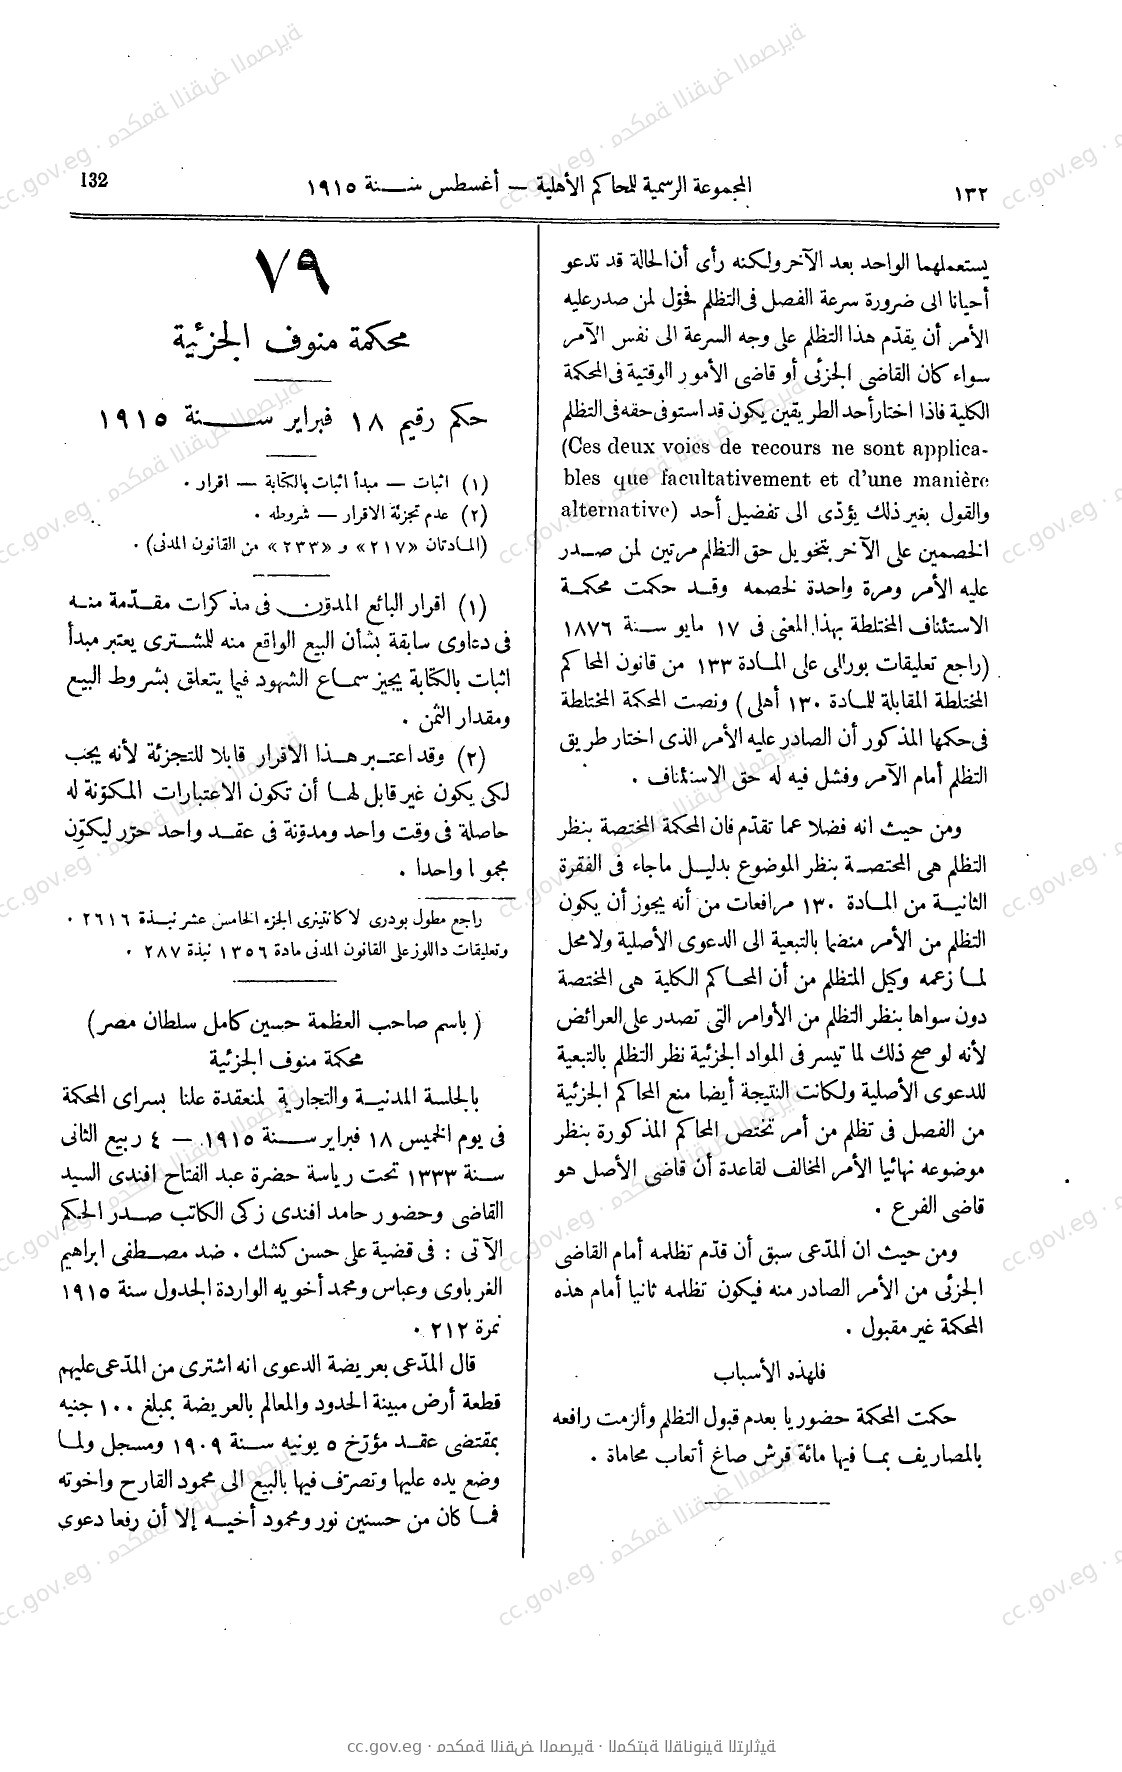 ١٣٢
المجموعة الرسمية للمحاكم الأهلية — أغسطس سنة ١٩١٥
132
يستعملهما الواحد بعد الآخر ولكنه رأى أن الحالة قد تدعو
أحيانا الى ضرورة سرعة الفصل فى التظلم فخوّل لمن صدر عليه
الأمر أن يقدّم هذا التظلم على وجه السرعة الى نفس الآمر
سواء كان القاضى الجزئى أو قاضى الأمور الوقتية فى المحكمة
الكلية فاذا اختار أحد الطريقين يكون قد استوفى حقه فى التظلم
(Ces deux voies de recours ne sont applica-
bles que facultativement et d'une manière
alternative) والقول بغير ذلك يؤدّى الى تفضيل أحد
الخصمين على الآخر بتخويل حق التظلم مرتين لمن صدر
عليه الأمر ومرة واحدة لخصمه وقد حكمت محكمة
الاستئناف المختلطة بهذا المعنى فى ١٧ مايو سنة ١٨٧٦
(راجع تعليقات بورالى على المادة ١٣٣ من قانون المحاكم
المختلطة المقابلة للمادة ١٣٠ أهلى) ونصت المحكمة المختلطة
فى حكمها المذكور أن الصادر عليه الأمر الذى اختار طريق
التظلم أمام الآمر وفشل فيه له حق الاستئناف .
ومن حيث انه فضلا عما تقدّم فان المحكمة المختصة بنظر
التظلم هى المختصة بنظر الموضوع بدليل ماجاء فى الفقرة
الثانية من المادة ١٣٠ مرافعات من أنه يجوز أن يكون
التظلم من الأمر منضما بالتبعية الى الدعوى الأصلية ولا محل
لما زعمه وكيل المتظلم من أن المحاكم الكلية هى المختصة
دون سواها بنظر التظلم من الأوامر التى تصدر على العرائض
لأنه لو صح ذلك لما تيسر فى المواد الجزئية نظر التظلم بالتبعية
للدعوى الأصلية ولكانت النتيجة أيضا منع المحاكم الجزئية
من الفصل فى تظلم من أمر تختص المحاكم المذكورة بنظر
موضوعه نهائيا الأمر المخالف لقاعدة أن قاضى الأصل هو
قاضى الفرع .
ومن حيث ان المدّعى سبق أن قدّم تظلمه أمام القاضى
الجزئى من الأمر الصادر منه فيكون تظلمه ثانيا أمام هذه
المحكمة غير مقبول .
فلهذه الأسباب
حكمت المحكمة حضوريا بعدم قبول التظلم وألزمت رافعه
بالمصاريف بما فيها مائة قرش صاغ أتعاب محاماة .
٧٩
محكمة منوف الجزئية
حكم رقيم ١٨ فبراير سنة ١٩١٥
(١) اثبات — مبدأ اثبات بالكتابة — اقرار .
(٢) عدم تجزئة الاقرار — شروطه .
(المادتان «٢١٧» و «٢٣٣» من القانون المدنى) .
(١) اقرار البائع المدوّن فى مذكرات مقدّمة منه
فى دعاوى سابقة بشأن البيع الواقع منه للمشترى يعتبر مبدأ
اثبات بالكتابة يجيز سماع الشهود فيما يتعلق بشروط البيع
ومقدار الثمن .
(٢) وقد اعتبر هذا الاقرار قابلا للتجزئة لأنه يجب
لكى يكون غير قابل لها أن تكون الاعتبارات المكوّنة له
حاصلة فى وقت واحد ومدوّنة فى عقد واحد حرّر ليكوّن
واحدا .
راجع مطول بودرى لاكانتينرى الجزء الخامس عشر نبذة ٢٦١٦ .
وتعليقات داللوز على القانون المدنى مادة ١٣٥٦ نبذة ٢٨٧ .
(باسم صاحب العظمة حسين كامل سلطان مصر)
محكمة منوف الجزئية
بالجلسة المدنية والتجارية لمنعقدة علنا بسراى المحكمة
فى يوم الخميس ١٨ فبراير سنة ١٩١٥ — ٤ ربيع الثانى
سنة ١٣٣٣ تحت رياسة حضرة عبد الفتاح افندى السيد
القاضى وحضور حامد افندى زكى الكاتب صدر الحكم
الآتى : فى قضية على حسن كشك . ضد مصطفى ابراهيم
الغرباوى وعباس ومحمد أخويه الواردة الجدول سنة ١٩١٥
نمرة ٢١٢ .
قال المدّعى بعريضة الدعوى انه اشترى من المدّعى عليهم
قطعة أرض مبينة الحدود والمعالم بالعريضة بمبلغ ١٠٠ جنيه
بمقتضى عقد مؤرّخ ٥ يونيه سنة ١٩٠٩ ومسجل ولما
وضع يده عليها وتصرّف فيها بالبيع الى محمود القارح واخوته
فما كان من حسنين نور ومحمود أخيه إلا أن رفعا دعوى
cc.gov.eg · محكمة النقض المصرية · المكتبة القانونية التراثية